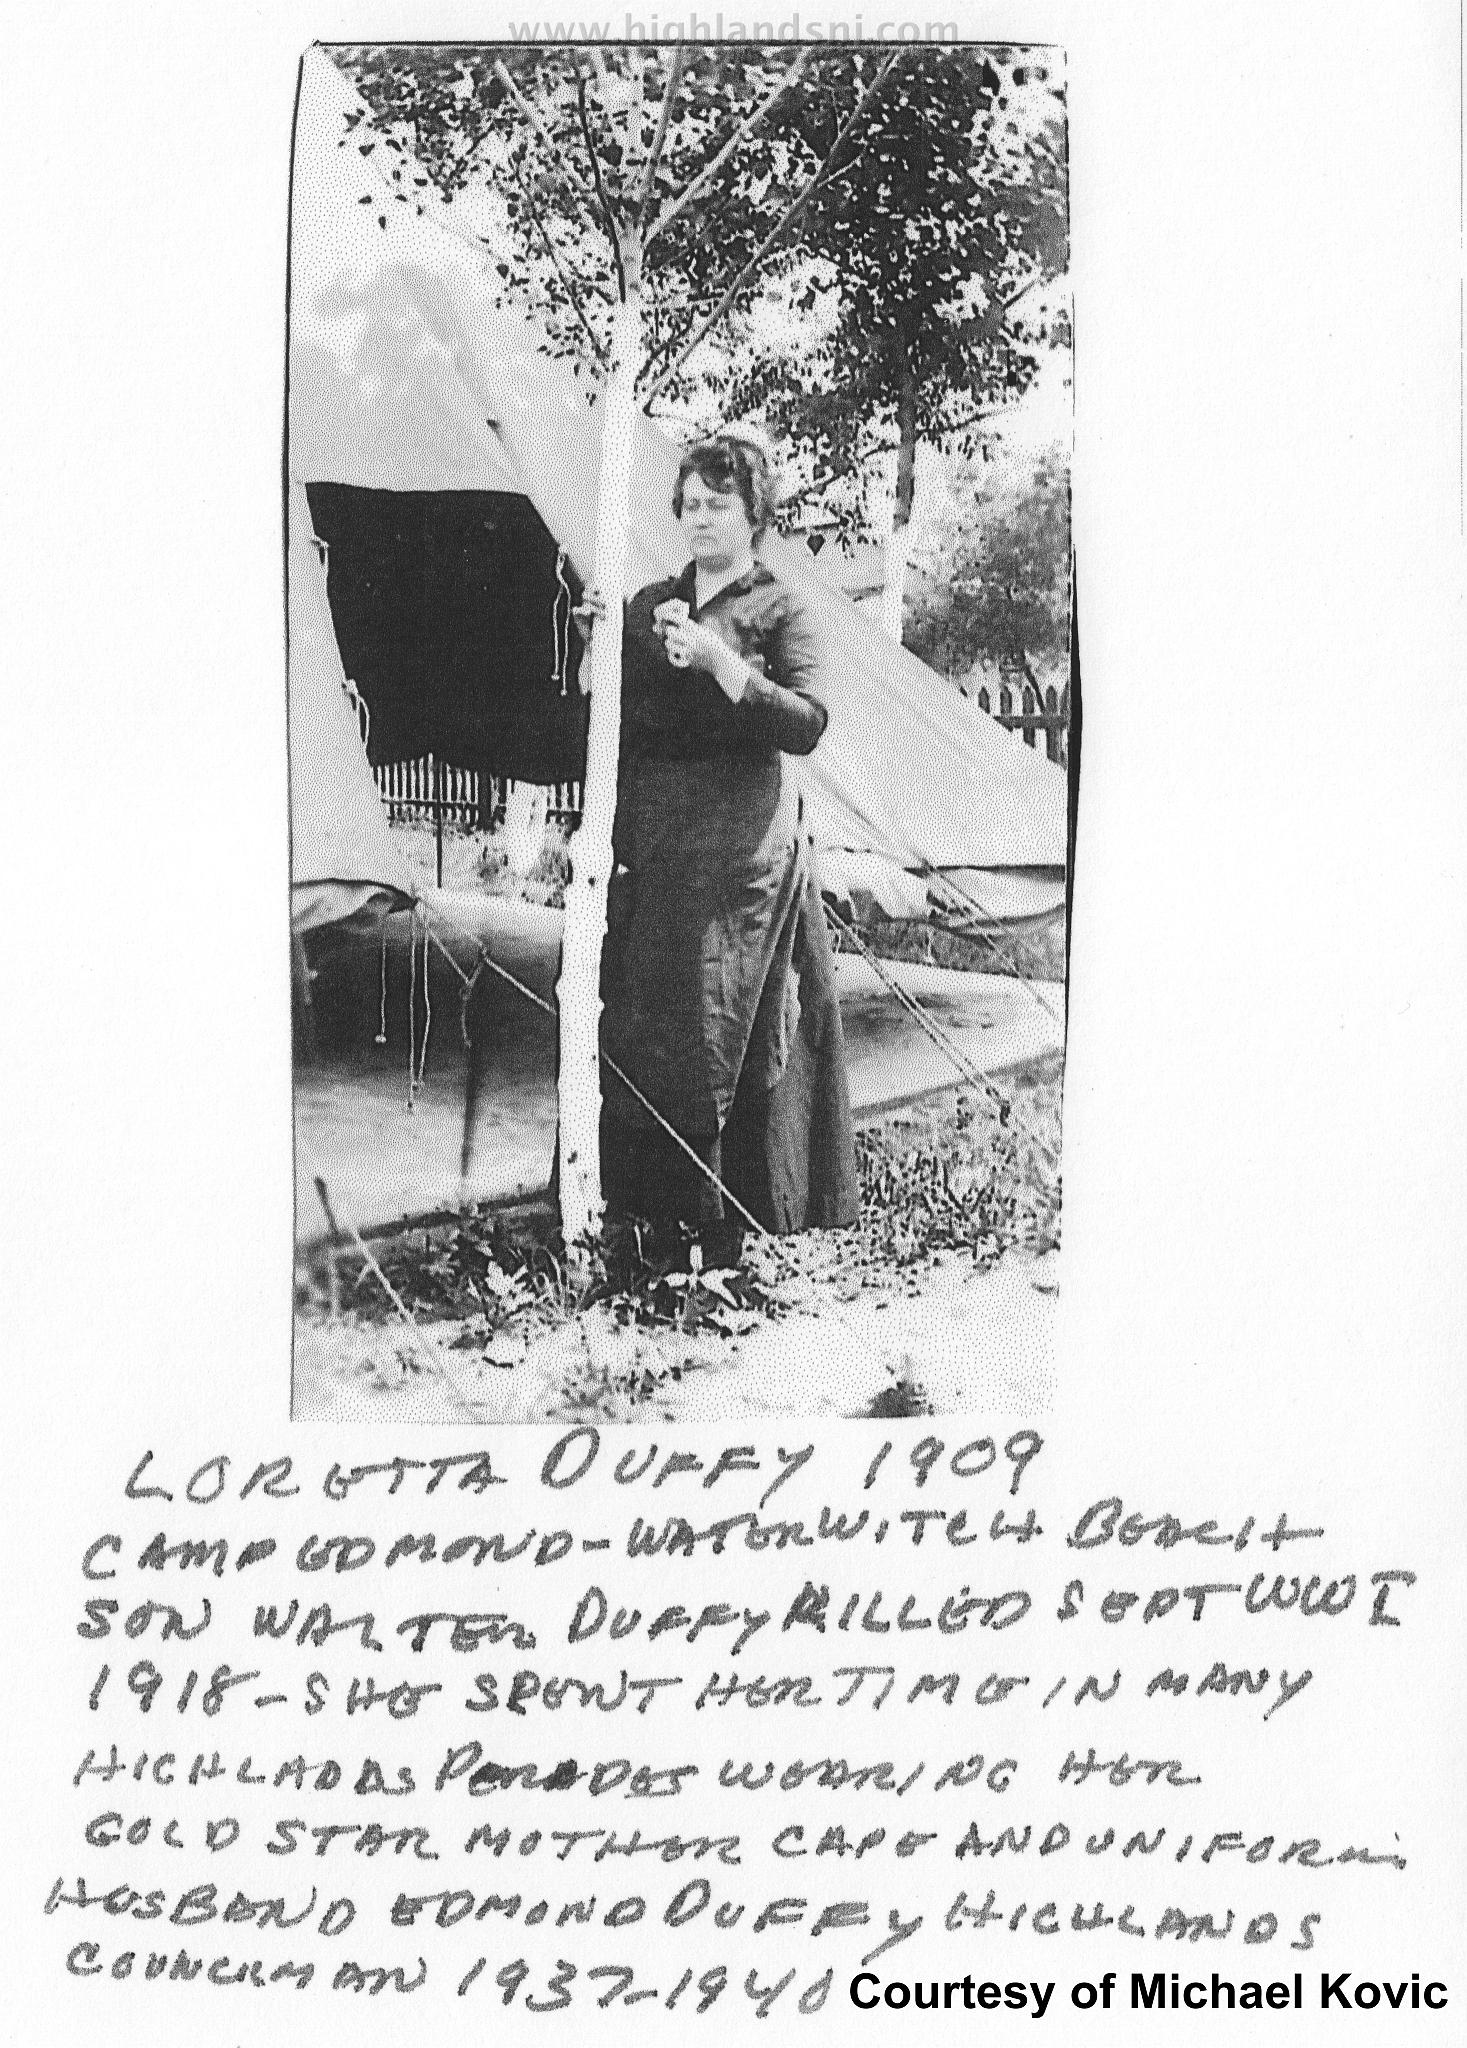 www.highlandsnj.com
LORETTA DUFFY 1909
CAMP EDMOND-WATERWITCH BEACH
SON WALTER DUFFY KILLED SEPT WW I
1918-SHE SPENT HER TIME IN MANY
HIGHLADDS PERADES WEARING HER
GOLD STAR MOTHER CAPE AND UNIFORM
HUSBAND EDMOND DUFFY HIGHLANDS
COUNCILMAN 1937-1940
Courtesy of Michael Kovic